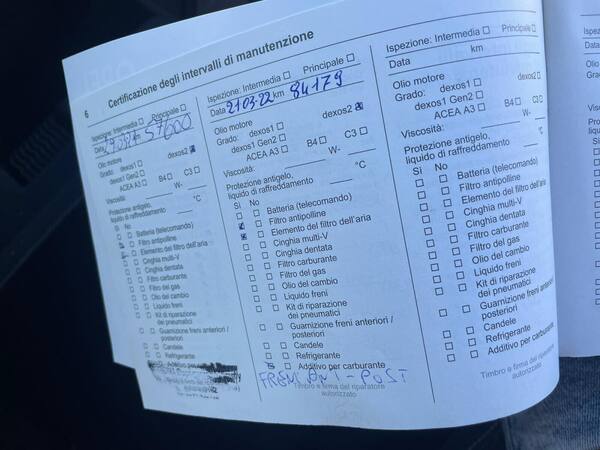 6 Certificazione degli intervalli di manutenzione
Ispezione: Intermedia □ Principale □
Data 57600
Olio motore
Grado: dexos1 □ dexos2 ☒
dexos1 Gen2 □
ACEA A3 □ B4 □ C3 □
Viscosità: W-
Protezione antigelo,
liquido di raffreddamento °C
Sì No
□ □ Batteria (telecomando)
☒ □ Filtro antipolline
☒ □ Elemento del filtro dell'aria
□ □ Cinghia multi-V
□ □ Cinghia dentata
□ □ Filtro carburante
□ □ Filtro del gas
□ □ Olio del cambio
□ □ Liquido freni
□ □ Kit di riparazione
dei pneumatici
□ □ Guarnizione freni anteriori /
posteriori
□ □ Candele
□ □ Refrigerante
Ispezione: Intermedia □ Principale □
Data 21.03.22 km 84179
Olio motore
Grado: dexos1 □ dexos2 ☒
dexos1 Gen2 □
ACEA A3 □ B4 □ C3 □
Viscosità: W-
Protezione antigelo,
liquido di raffreddamento °C
Sì No
□ □ Batteria (telecomando)
☒ □ Filtro antipolline
☒ □ Elemento del filtro dell'aria
□ □ Cinghia multi-V
□ □ Cinghia dentata
□ □ Filtro carburante
□ □ Filtro del gas
□ □ Olio del cambio
□ □ Liquido freni
□ □ Kit di riparazione
dei pneumatici
□ □ Guarnizione freni anteriori /
posteriori
□ □ Candele
□ □ Refrigerante
☒ □ Additivo per carburante
FRENI ANT - POST
Timbro e firma del riparatore
autorizzato
Ispezione: Intermedia □ Principale □
Data km
Olio motore
Grado: dexos1 □ dexos2 □
dexos1 Gen2 □
ACEA A3 □ B4 □ C3 □
Viscosità: W-
Protezione antigelo,
liquido di raffreddamento °C
Sì No
□ □ Batteria (telecomando)
□ □ Filtro antipolline
□ □ Elemento del filtro dell'aria
□ □ Cinghia multi-V
□ □ Cinghia dentata
□ □ Filtro carburante
□ □ Filtro del gas
□ □ Olio del cambio
□ □ Liquido freni
□ □ Kit di riparazione
dei pneumatici
□ □ Guarnizione freni anteriori /
posteriori
□ □ Candele
□ □ Refrigerante
□ □ Additivo per carburante
Timbro e firma del riparatore
autorizzato